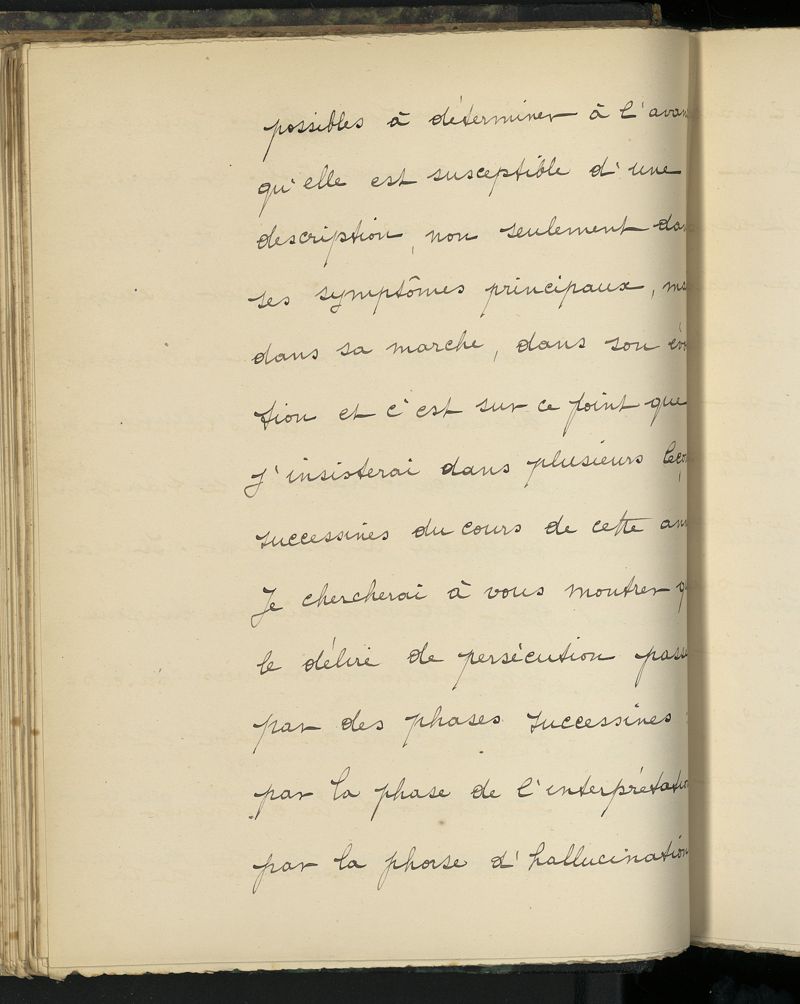 possibles à déterminer à l'avan
qu'elle est susceptible d'une
description, non seulement dan
ses symptômes principaux, ma
dans sa marche, dans son évo
tion et c'est sur ce point que
j'insisterai dans plusieurs leço
successives du cours de cette ann
Je chercherai à vous montrer q
le délire de persécution passe
par des phases successives :
par la phase de l'interprétation
par la phase d'hallucination